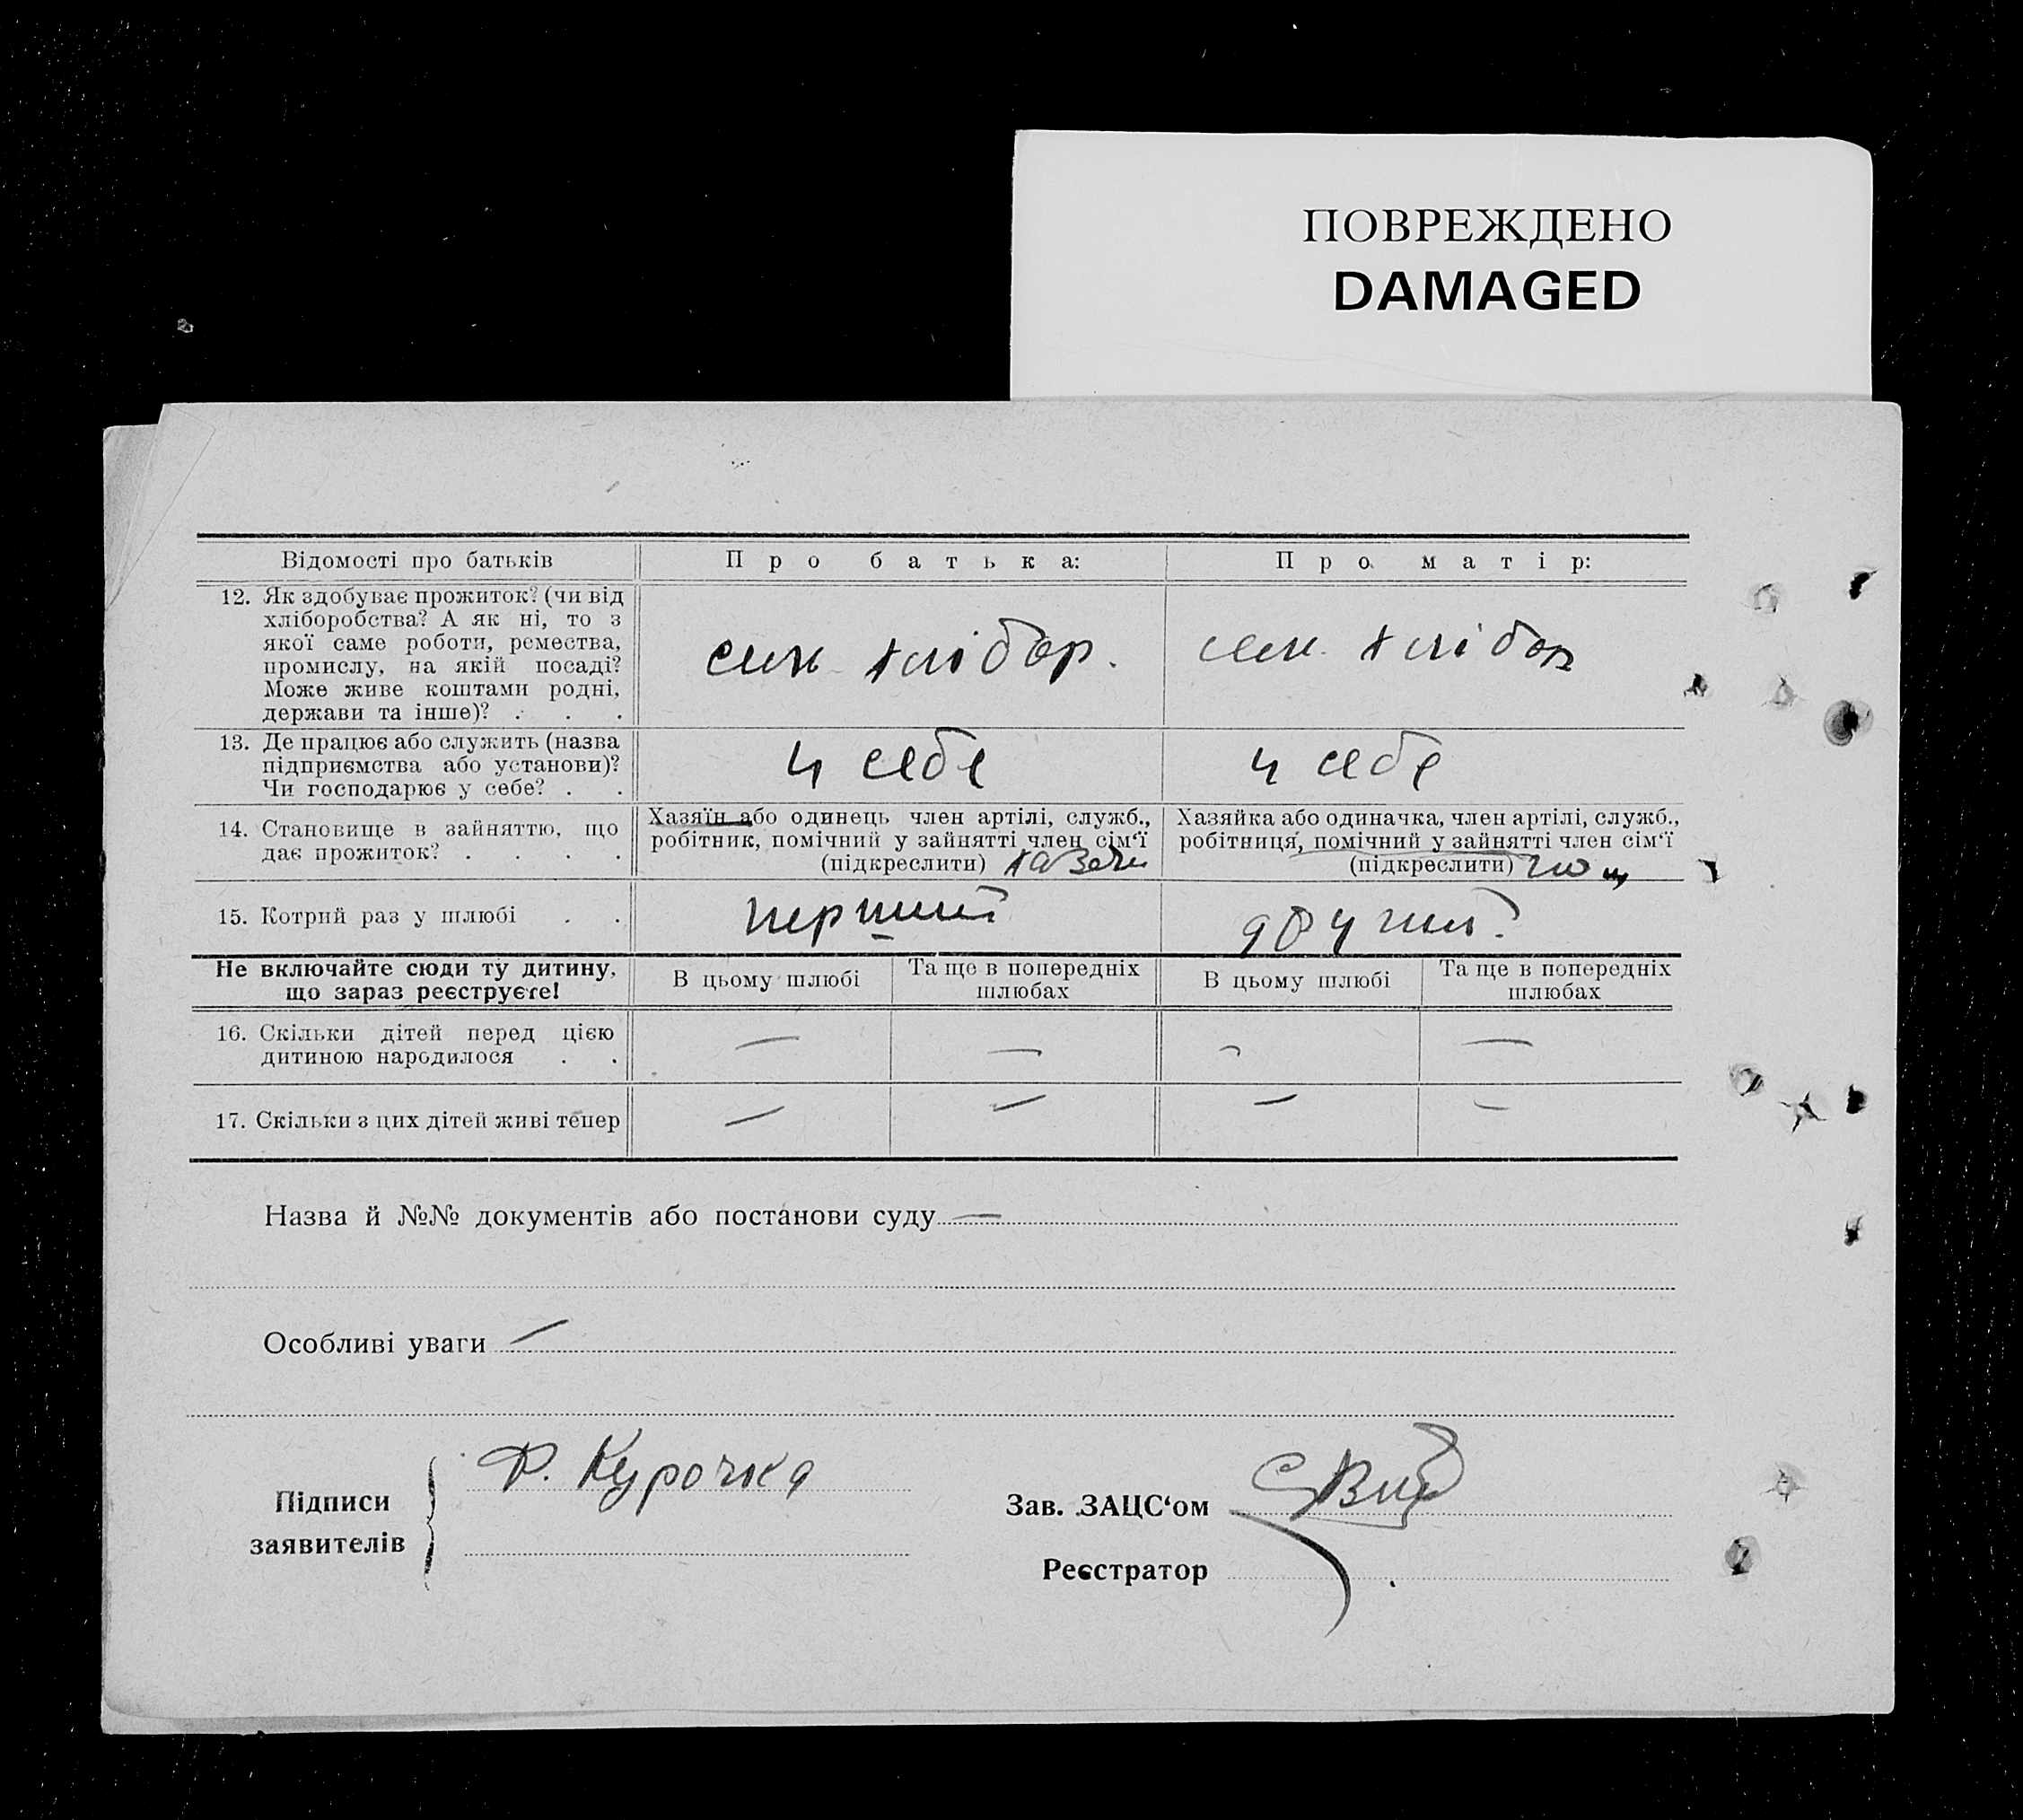 ПОВРЕЖДЕНО
DAMAGED
Відомості про батьків
Про батька:
Про матір:
12. Як здобуває прожиток? (чи від
хліборобства? А як ні, то з
якої саме роботи, ремества,
промислу, на якій посаді?
Може живе коштами родні,
держави та інше)? . . .
хлібор.
хлібор
13. Де працює або служить (назва
підприємства або установи)?
Чи господарює у себе? . .
у себе
у себе
14. Становище в зайняттю, що
дає прожиток? . . . .
Хазяїн або одинець член артілі, служб.,
робітник, помічний у зайнятті член сім‘ї
(підкреслити)
Хазяйка або одиначка, член артілі, служб.,
робітниця, помічний у зайнятті член сім‘ї
(підкреслити)
15. Котрий раз у шлюбі . .
перший
другий
Не включайте сюди ту дитину,
що зараз реєструєте!
В цьому шлюбі
Та ще в попередніх
шлюбах
В цьому шлюбі
Та ще в попередніх
шлюбах
16. Скільки дітей перед цією
дитиною народилося . .
—
—
—
—
17. Скільки з цих дітей живі тепер
—
—
—
—
Назва й №№ документів або постанови суду —
Особливі уваги —
Підписи
заявителів
Ф. Курочка
Зав. ЗАЦС‘ом
Реєстратор